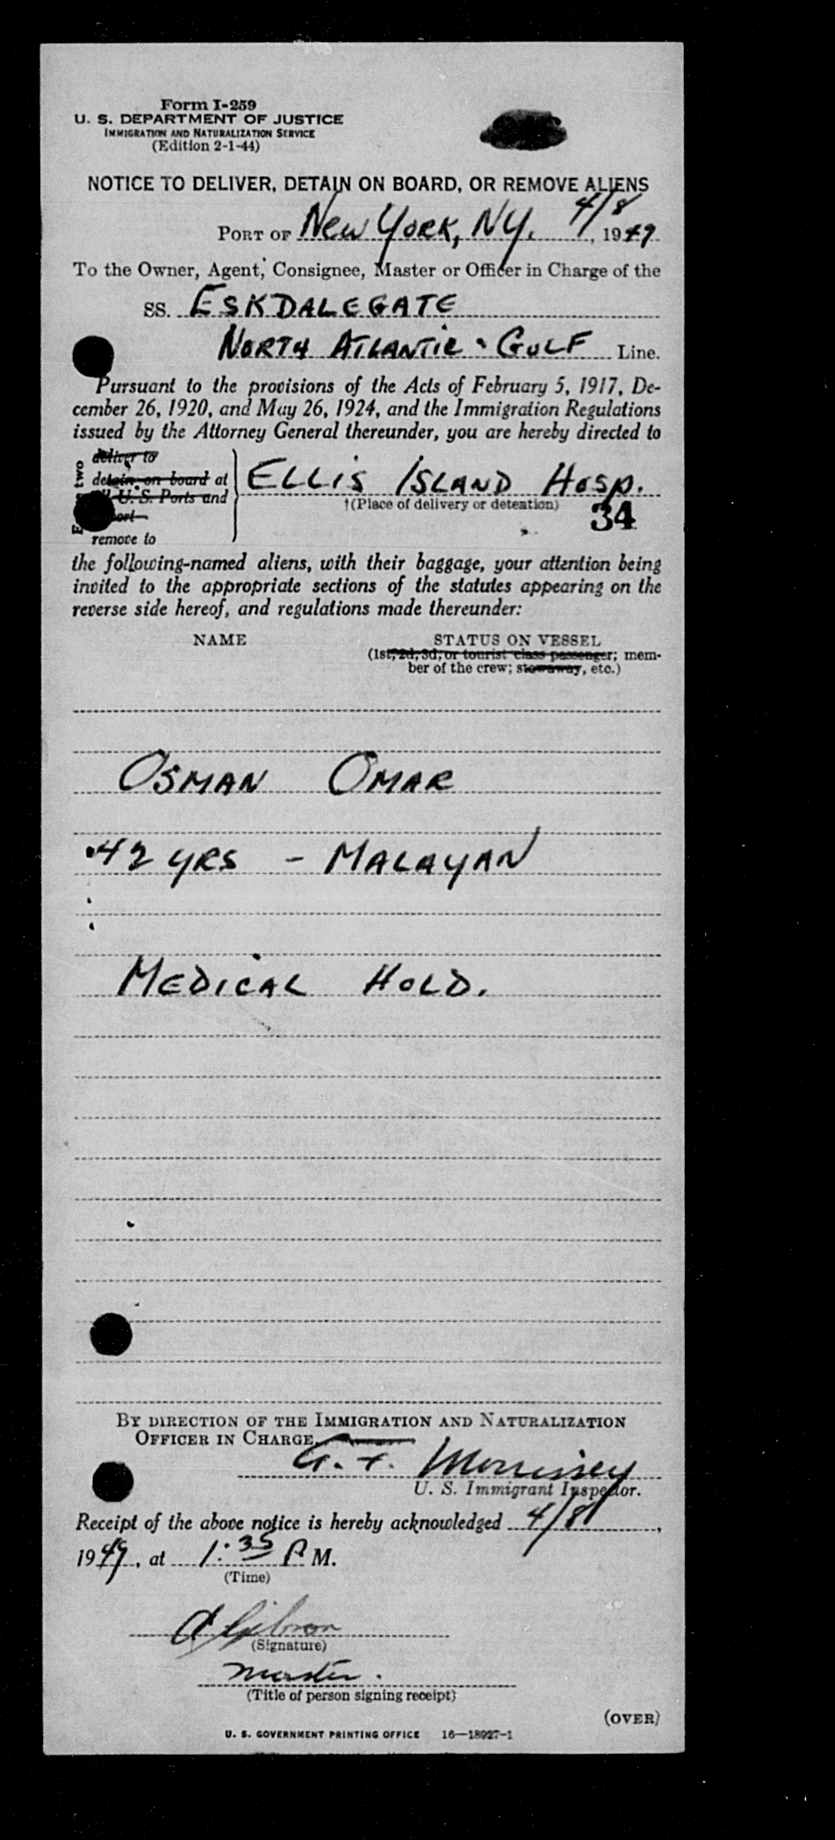 Form I-259
U. S. DEPARTMENT OF JUSTICE
IMMIGRATION AND NATURALIZATION SERVICE
(Edition 2-1-44)
NOTICE TO DELIVER, DETAIN ON BOARD, OR REMOVE ALIENS
PORT OF NEW YORK, NY. 4/8, 1949
To the Owner, Agent, Consignee, Master or Officer in Charge of the
SS. ESKDALEGATE
NORTH ATLANTIC & GULF Line.
Pursuant to the provisions of the Acts of February 5, 1917, De-
cember 26, 1920, and May 26, 1924, and the Immigration Regulations
issued by the Attorney General thereunder, you are hereby directed to
deliver to
detain on board at
U. S. Ports and
remove to
two
ELLIS ISLAND HOSP.
†(Place of delivery or detention)
34
the following-named aliens, with their baggage, your attention being
invited to the appropriate sections of the statutes appearing on the
reverse side hereof, and regulations made thereunder:
NAME
STATUS ON VESSEL
(1st, 2d, 3d, or tourist class passenger; mem-
ber of the crew; stowaway, etc.)
OSMAN OMAR
42 YRS - MALAYAN
MEDICAL HOLD.
BY DIRECTION OF THE IMMIGRATION AND NATURALIZATION
OFFICER IN CHARGE
G. F. Morrissey
U. S. Immigrant Inspector.
Receipt of the above notice is hereby acknowledged 4/8,
1949, at 1:35 P M.
(Time)
(Signature)
Master.
(Title of person signing receipt)
(OVER)
U. S. GOVERNMENT PRINTING OFFICE 16—18927-1